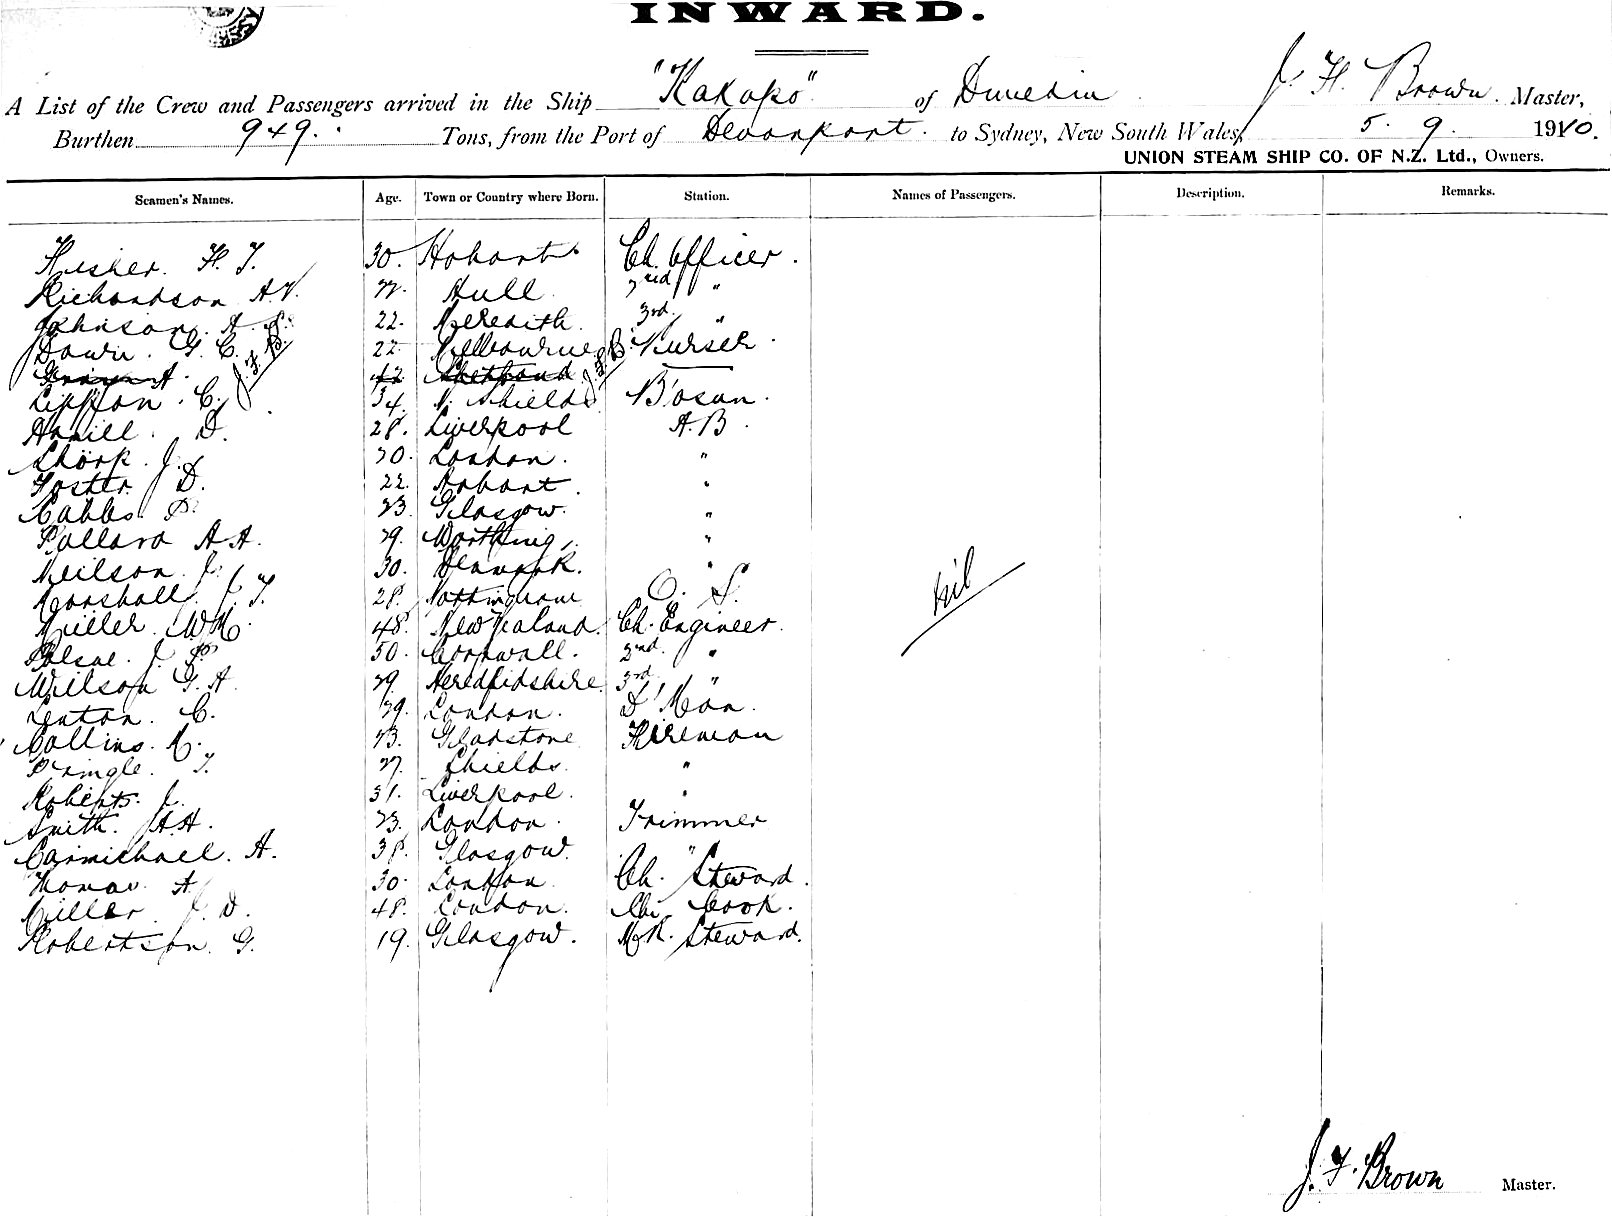 INWARD.
A List of the Crew and Passengers arrived in the Ship "Kakapo" of Dunedin J. H. Brown. Master,
Burthen 949. Tons, from the Port of Devonport. to Sydney, New South Wales, 5. 9. 1910.
UNION STEAM SHIP CO. OF N.Z. Ltd., Owners.
Seamen's Names. Age. Town or Country where Born. Station. Names of Passengers. Description. Remarks.
Fisher. H. J. 30. Hobart. Ch. Officer.
Richardson A.V. 22. Hull 2nd "
Johnson. A. S. 22. Meredith. 3rd. "
Down. G. C. 22 Melbourne Purser.
A. 42 J.F.B. J.F.B.
C. 34. N. Shields B'osun.
D. 28. Liverpool A.B.
Thorp. J. 20. London. "
Foster D. 22. Hobart. "
Cabbs. P. 23. Glasgow. "
Pollard A A. 29. Worthing. "
Neilson. J. 30. Denmark. "
Marshall. J. T. 28. Nottingham O. S.
Miller. W.H. 48. New Zealand. Ch. Engineer.
J. P. 50. Cornwall. 2nd. "
Willson G. A. 29. Heredfidshire. 3rd "
Lenton. C. 39. London. D'Man.
Collins. 23. Gladstone Fireman
Pringle. T. 27. Shields. "
Roberts. J. 31. Liverpool. "
Smith. A.H. 23. London. Trimmer
Carmichael. A. 38. Glasgow. "
Thomas. A. 30. London Ch. Steward.
Miller. J. D. 48. London. Ch. Cook.
Robertson. G. 19. Glasgow. M.R. Steward.
Nil
J. F. Brown Master.